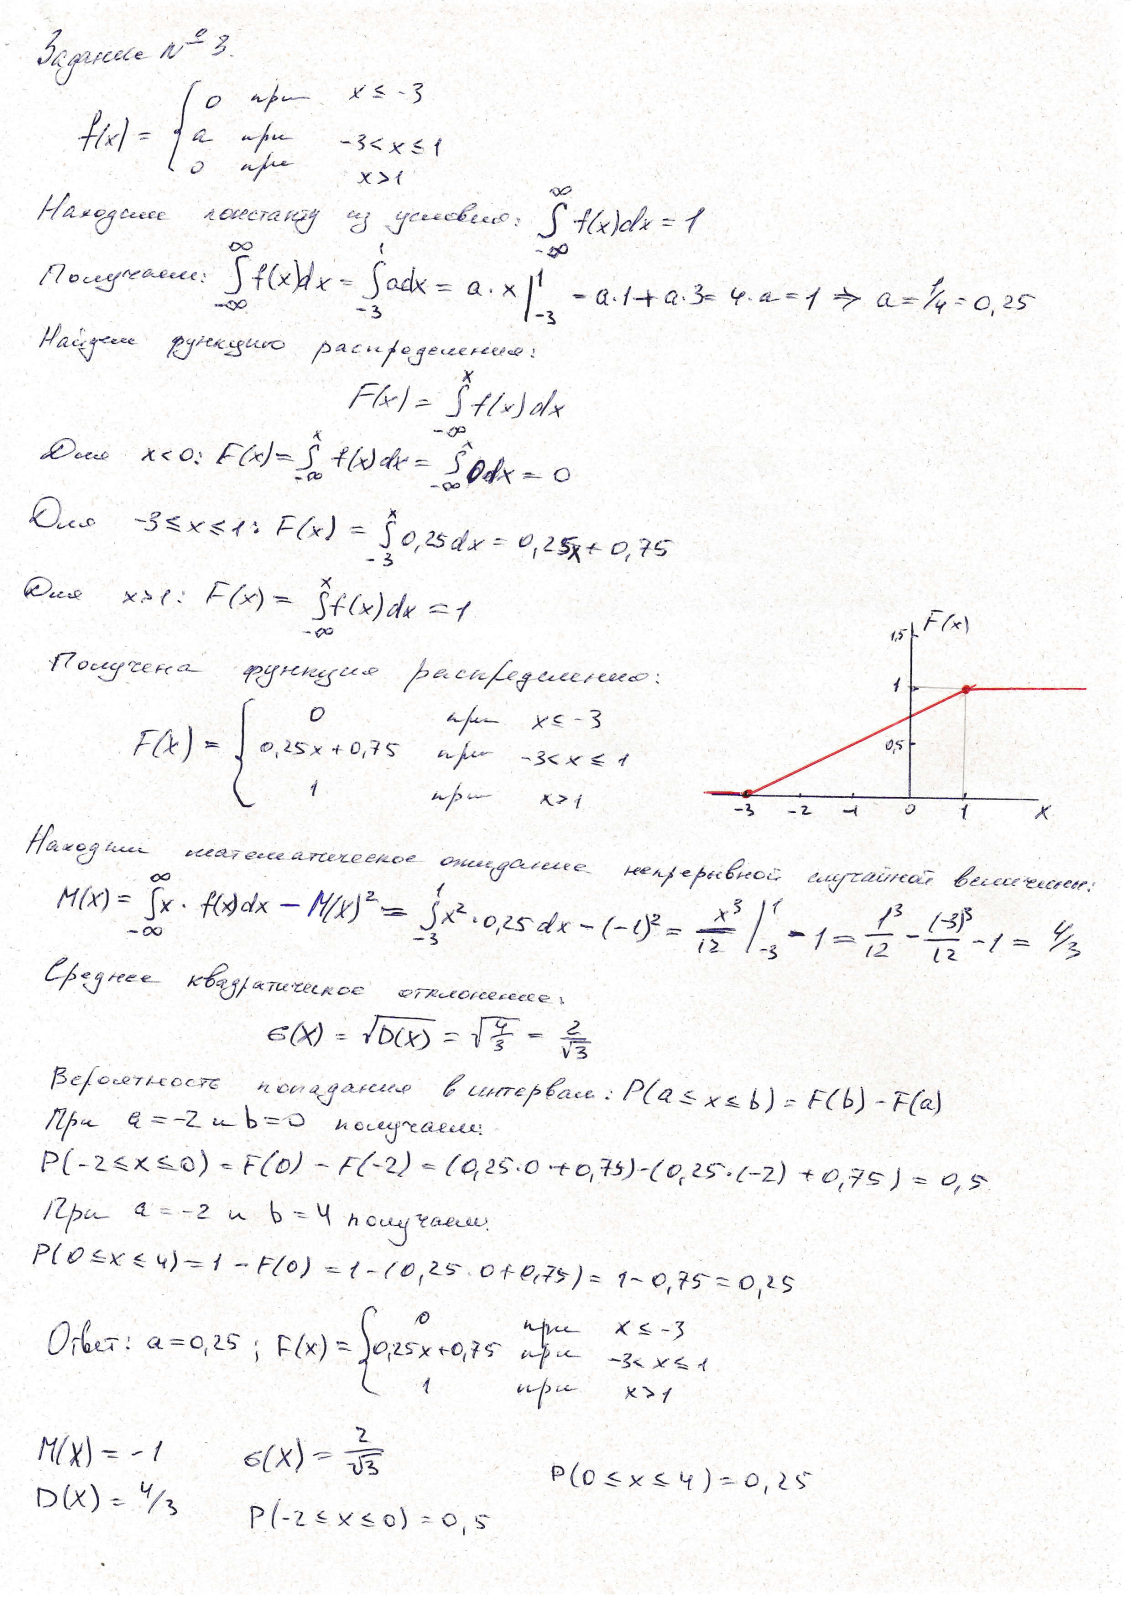 Задание № 3.
f(x) = { 0 при x ≤ -3
a при -3 < x ≤ 1
0 при x > 1
Находим константу из условия: ∫_{-∞}^{∞} f(x)dx = 1
Получаем: ∫_{-∞}^{∞} f(x)dx = ∫_{-3}^{1} adx = a · x |_{-3}^{1} = a·1 + a·3 = 4·a = 1 ⇒ a = 1/4 = 0,25
Найдем функцию распределения:
F(x) = ∫_{-∞}^{x} f(x)dx
Для x < 0: F(x) = ∫_{-∞}^{x} f(x)dx = ∫_{-∞}^{x} 0dx = 0
Для -3 ≤ x ≤ 1: F(x) = ∫_{-3}^{x} 0,25dx = 0,25x + 0,75
Для x > 1: F(x) = ∫_{-∞}^{x} f(x)dx = 1
Получена функция распределения:
F(x) = { 0 при x ≤ -3
0,25x + 0,75 при -3 < x ≤ 1
1 при x > 1
F(x)
1,5
1
0,5
-3 -2 -1 0 1 x
Находим математическое ожидание непрерывной случайной величины:
M(x) = ∫_{-∞}^{∞} x · f(x)dx - M(x)² = ∫_{-3}^{1} x² · 0,25 dx - (-1)² = x³/12 |_{-3}^{1} - 1 = 1³/12 - (-3)³/12 - 1 = 4/3
Среднее квадратическое отклонение:
σ(X) = √D(X) = √4/3 = 2/√3
Вероятность попадания в интервал: P(a ≤ x ≤ b) = F(b) - F(a)
При a = -2 и b = 0 получаем:
P(-2 ≤ x ≤ 0) = F(0) - F(-2) = (0,25·0 + 0,75) - (0,25·(-2) + 0,75) = 0,5
При a = -2 и b = 4 получаем:
P(0 ≤ x ≤ 4) = 1 - F(0) = 1 - (0,25·0 + 0,75) = 1 - 0,75 = 0,25
Ответ: a = 0,25 ; F(x) = { 0 при x ≤ -3
0,25x + 0,75 при -3 < x ≤ 1
1 при x > 1
M(X) = -1 σ(X) = 2/√3
P(0 ≤ x ≤ 4) = 0,25
D(X) = 4/3
P(-2 ≤ x ≤ 0) = 0,5